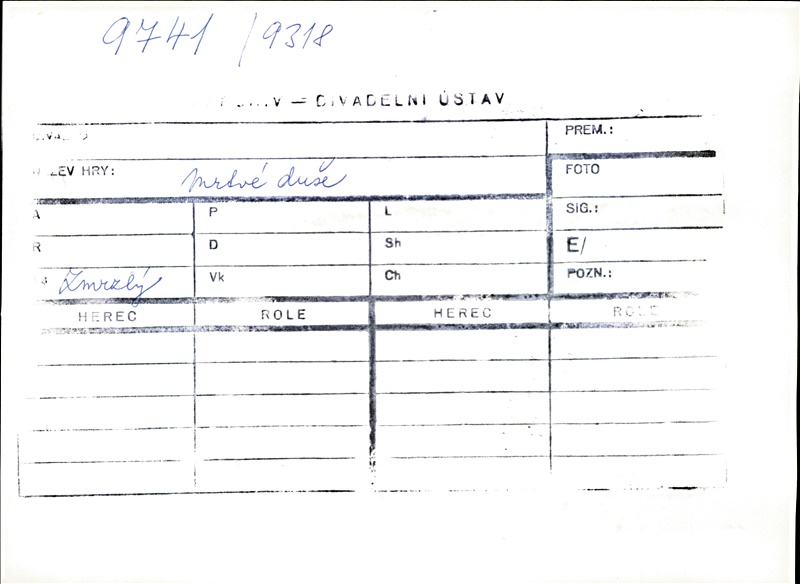 9741 / 9318
V = DIVADELNÍ ÚSTAV
PREM.:
ZEV HRY: Mrtvé duše
FOTO
A P L SIG.:
R D Sh E/
Zmrzlý Vk Ch POZN.:
HEREC ROLE HEREC ROLE